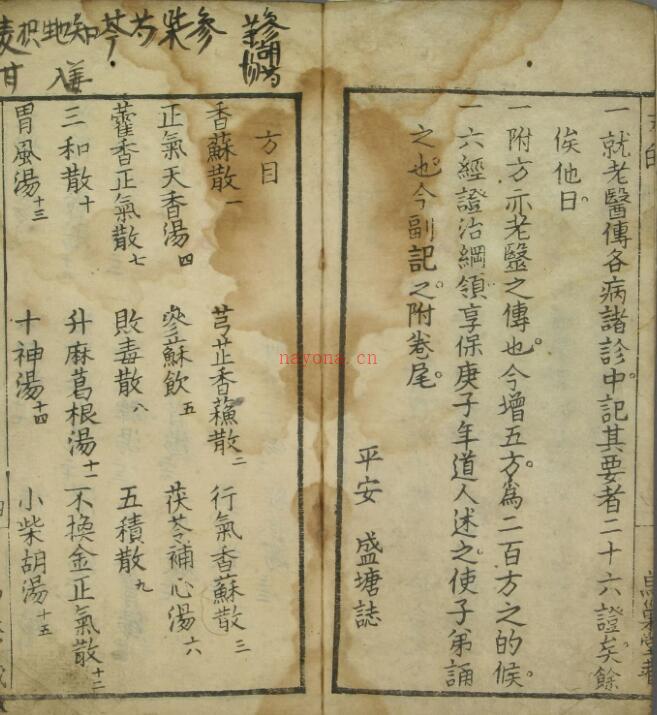 一就老醫傳各病諸診中記其要者二十六證矣餘
俟他日。
一附方亦老醫之傳也。今增五方。為二百方之的候。
一六經證治綱領享保庚子年道人述之。使子弟誦
之也。今副記之。附卷尾。
平安 盛塘誌
參柴芍芩知地枳
甘
方目
香蘇散一 芎芷香蘓散二 行氣香蘇散三
正氣天香湯四 參蘇飲五 茯苓補心湯六
藿香正氣散七 敗毒散八 五積散九
三和散十 升麻葛根湯十一 不換金正氣散十二
胃風湯十三 十神湯十四 小柴胡湯十五
nayona.cn